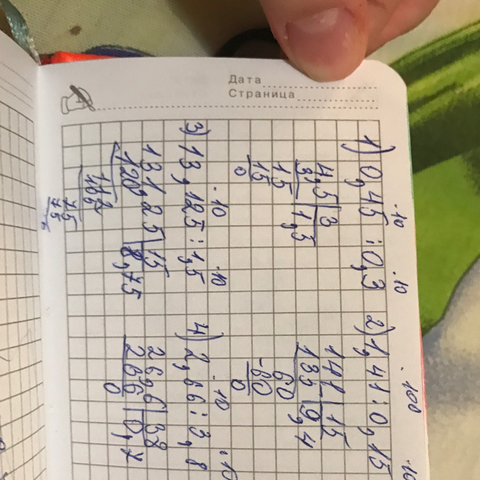 Дата
Страница
1) 0,45 : 0,3
·10 ·10
4,5 | 3
3 | 1,5
15
15
0
2) 1,41 : 0,15
·100 ·10
141 | 15
135 | 9,4
60
-60
0
3) 13,125 : 1,5
·10 ·10
131,25 | 15
120 | 8,75
112
105
75
75
4) 2,66 : 3,8
·10 ·10
26,6 | 38
266 | 0,7
0